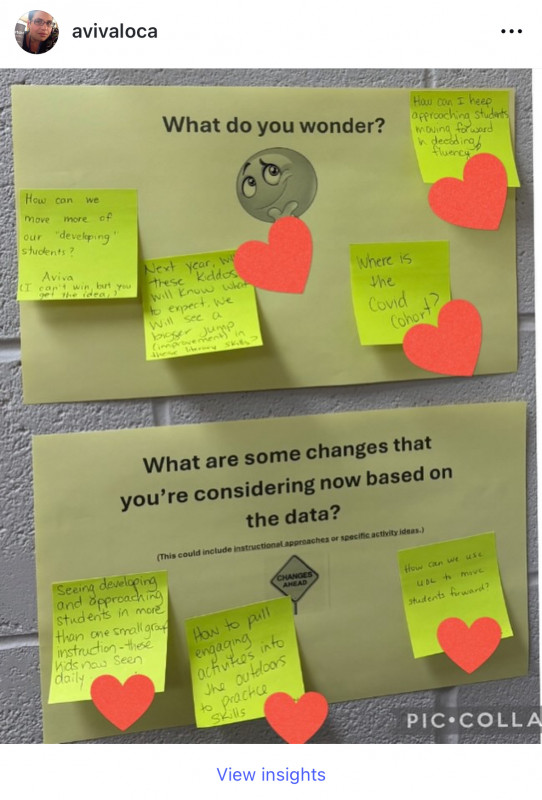 avivaloca
What do you wonder?
How can I keep
approaching students
moving forward
in decoding/
fluency?
How can we
move more of
our "developing"
students?
Aviva
(I can't win, but you
get the idea.)
Next year,
these kiddos
will know what
to expect. We
will see a
bigger jump
(improvement) in
these literacy skills?
Where is
the
Covid
Cohort?
What are some changes that
you're considering now based on
the data?
(This could include instructional approaches or specific activity ideas.)
CHANGES
AHEAD
Seeing developing
and approaching
students in more
than one small group
instruction - these
kids now seen
daily
How to pull
engaging
activities into
the outdoors
to practice
skills
How can we use
to move
students forward?
PIC•COLLA
View insights